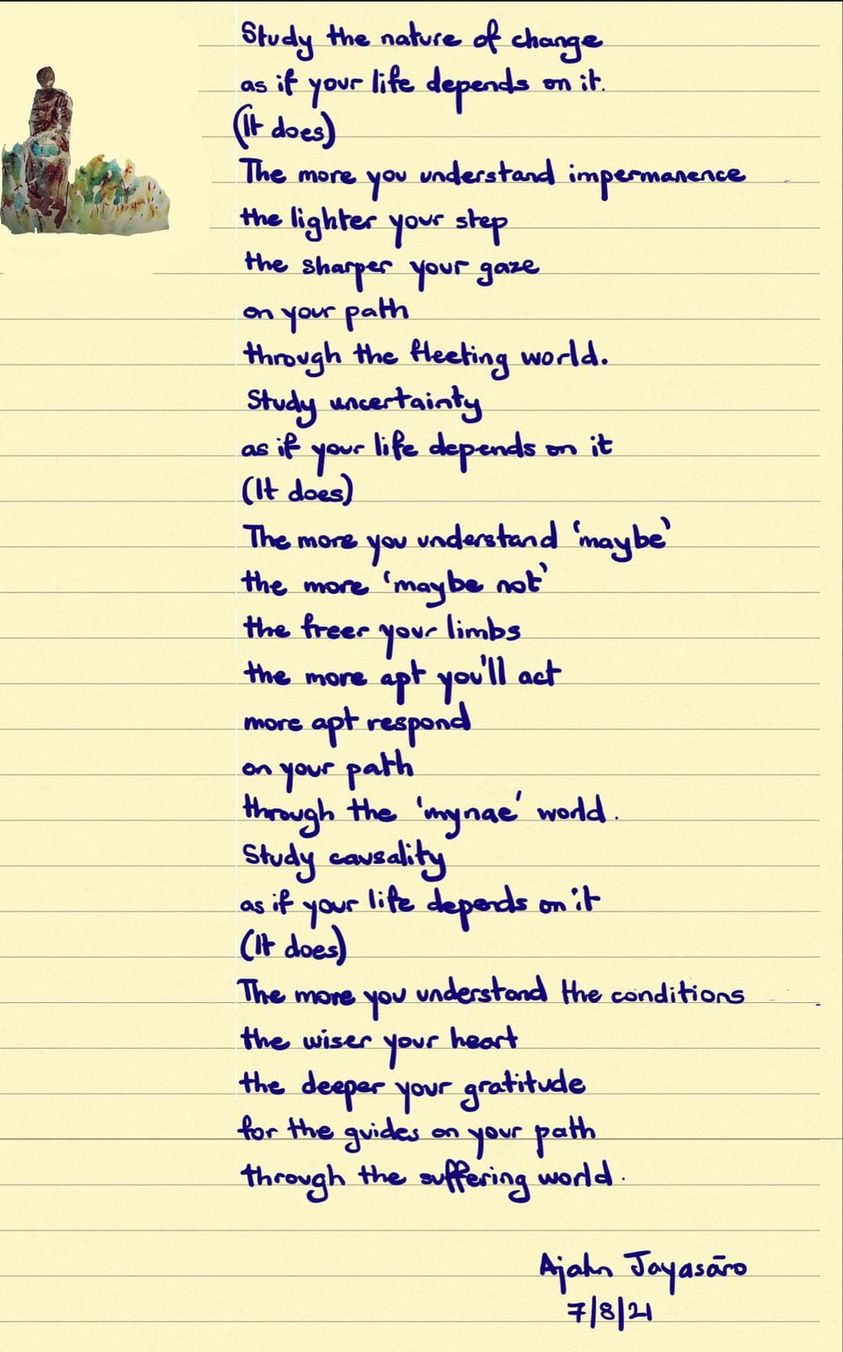 Study the nature of change
as if your life depends on it.
(It does)
The more you understand impermanence
the lighter your step
the sharper your gaze
on your path
through the fleeting world.
Study uncertainty
as if your life depends on it
(It does)
The more you understand 'maybe'
the more 'maybe not'
the freer your limbs
the more apt you'll act
more apt respond
on your path
through the 'mynae' world.
Study causality
as if your life depends on it
(It does)
The more you understand the conditions
the wiser your heart
the deeper your gratitude
for the guides on your path
through the suffering world.
Ajahn Jayasāro
7/8/21